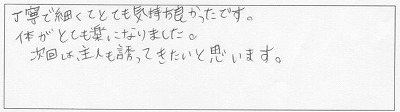 丁寧で細くてとても気持ち良かったです。
体がとても楽になりました。
次回は、主人も誘ってきたいと思います。